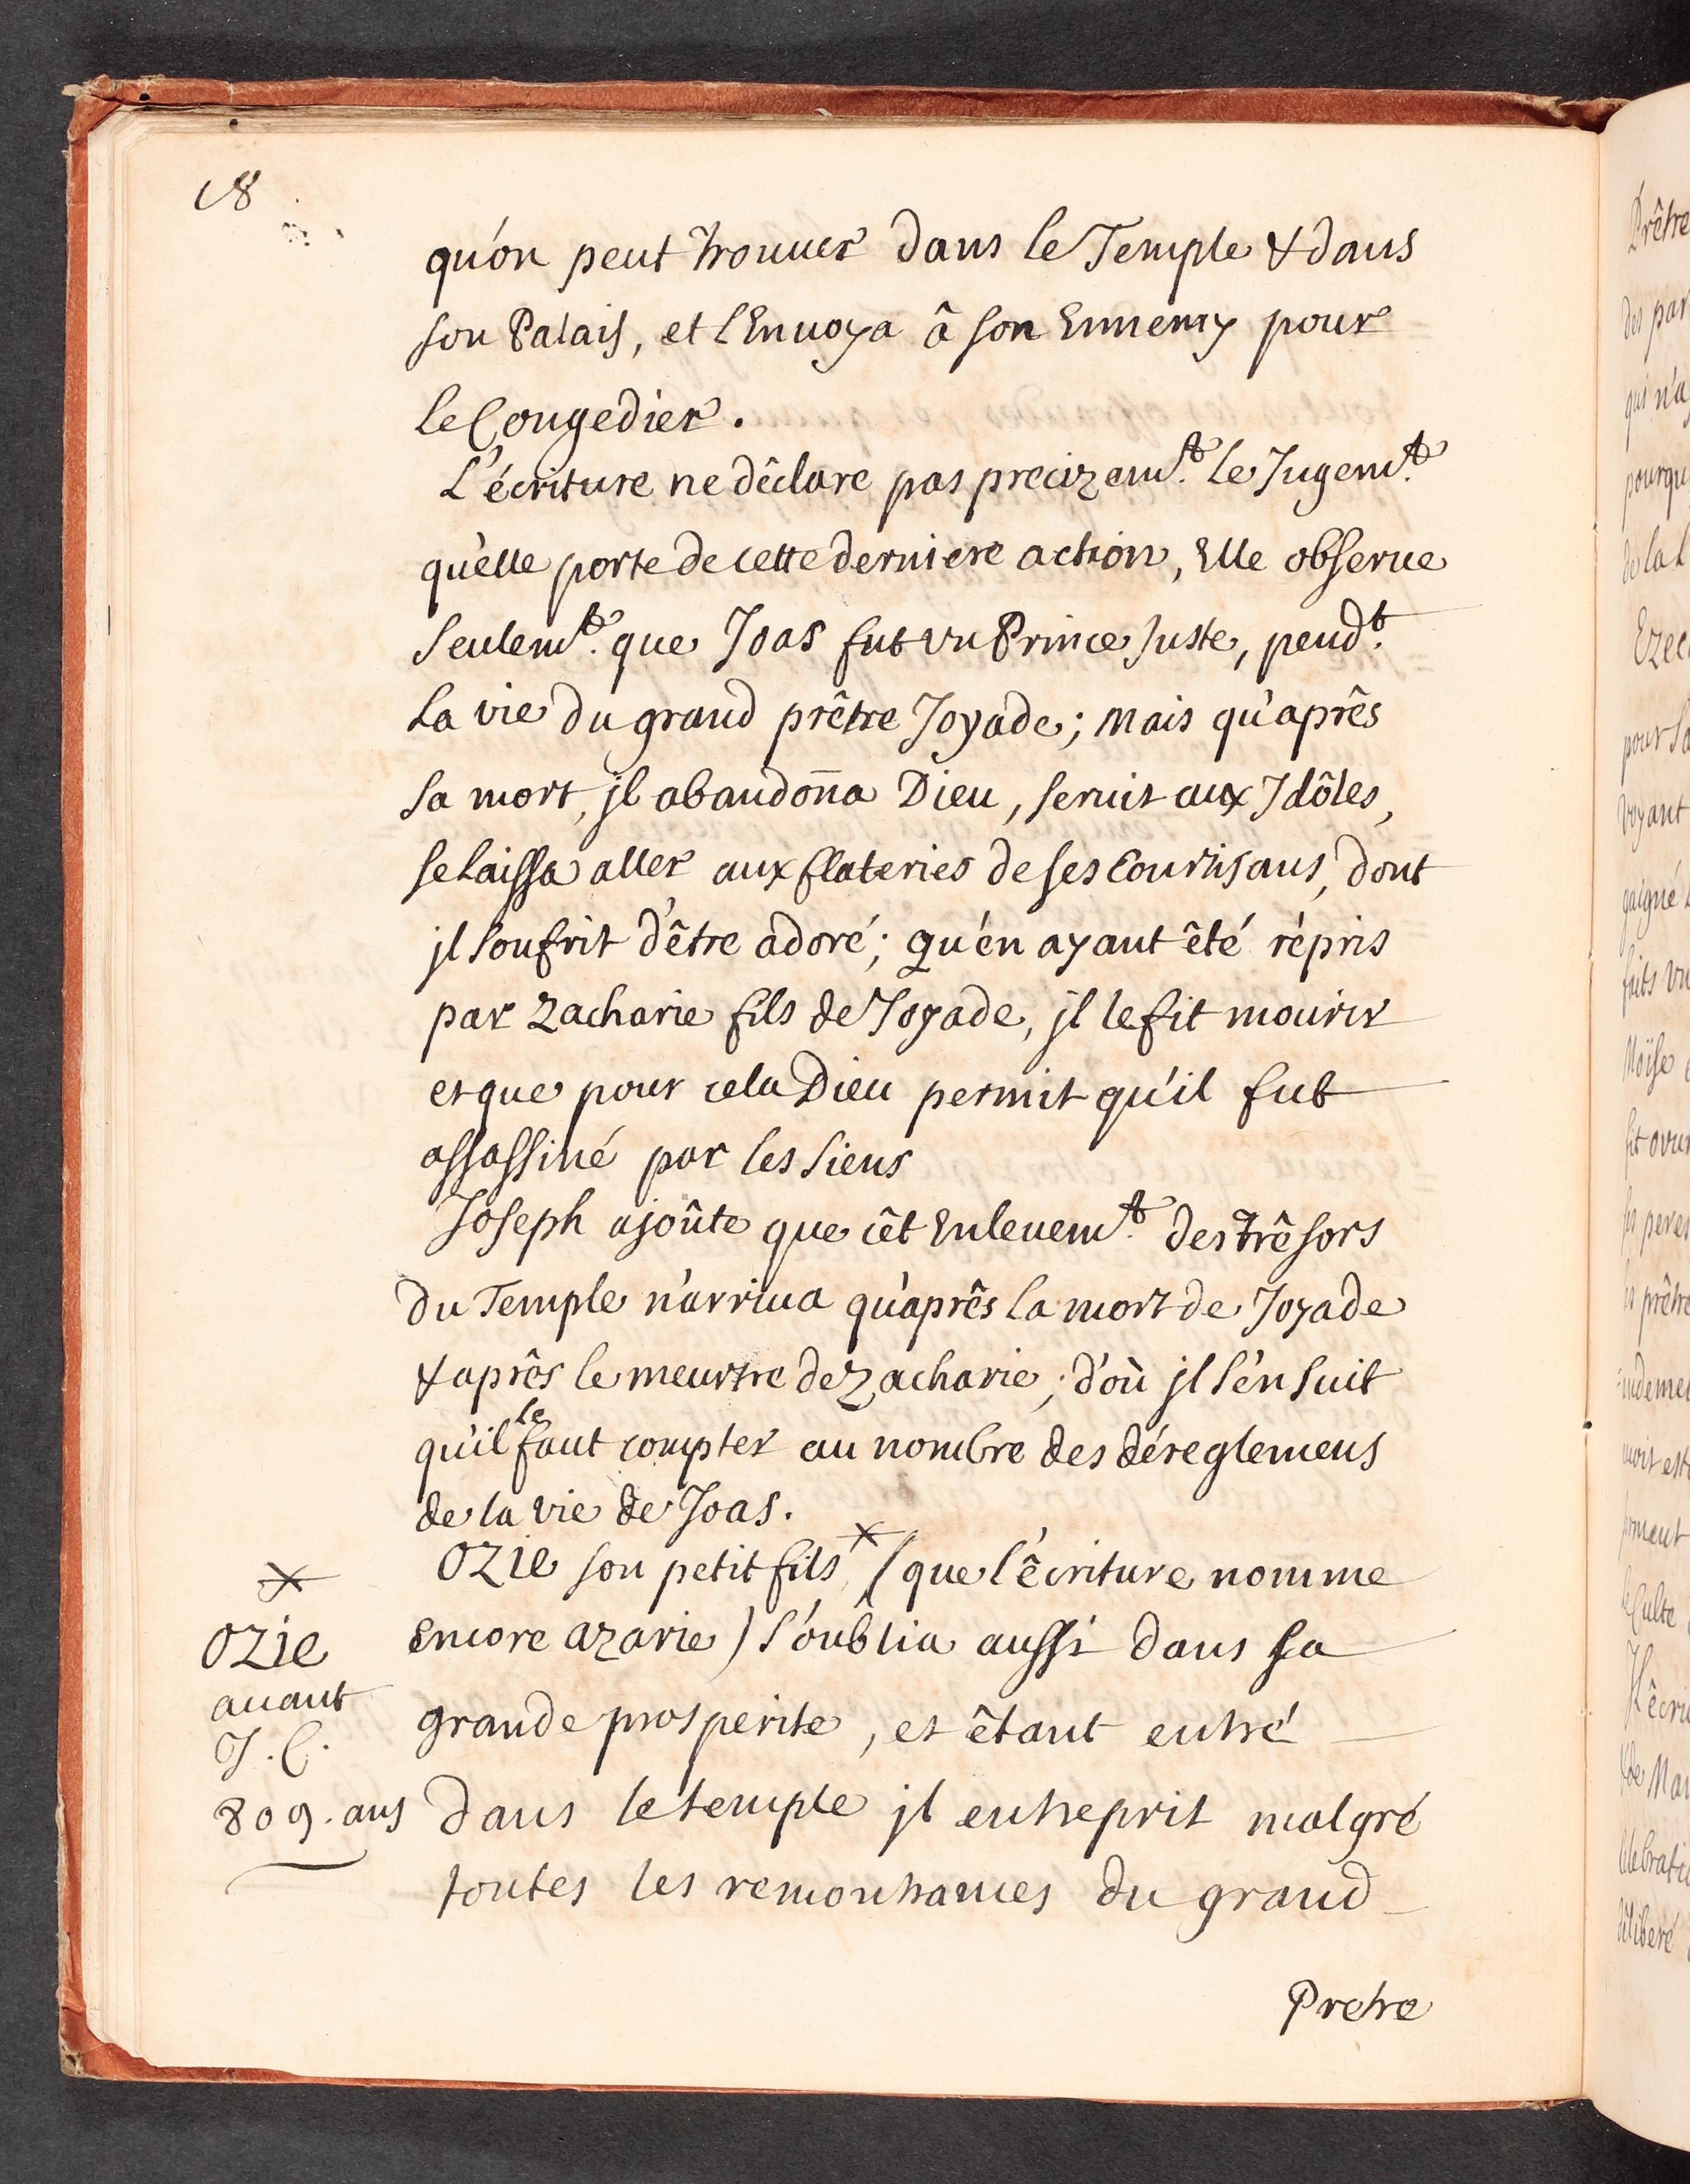 18
qu'on peut trouuer dans le Temple & dans
son Palais, et l'Enuoya â son Ennemy pour
le Congedier.
L'écriture ne dêclare pas precizemt. le Jugemt.
qu'elle porte de cette derniere action, Elle obserue
Seulemt. que Joas fut vn Prince Juste, pendt.
La vie du grand prêtre Joyade; mais qu'aprês
sa mort, jl abandoña Dieu, seruit aux Jdôles,
se laissa aller aux flateries de ses Courtisans, dont
jl soufrit d'être adoré; qu'en ayant êté répris
par Zacharie fils de Joyade, jl le fit mourir
et que pour cela Dieu permit qu'il fut
assassiné par les siens
Joseph ajoûte que cêt Enleuemt. des trêsors
du Temple n'arriua qu'aprês la mort de Joyade
& aprês le meurtre de Zacharie; d'où jl s'en suit
qu'il le faut compter au nombre des déreglemens
de la vie de Joas.
OZIE son petit fils × (que l'êcriture nomme
Encore azarie) s'oublia aussi dans sa
grande prosperite, et êtant entré
dans le temple jl entreprit malgré
toutes les remontrances du grand
Pretre
×
OZIE
auant
J. C.
809. ans
Prêtre
des par
qui n'a
pourqu
de la l
Ezec
pour sa
voyant
gaigné
faits vn
Moïse
fit ouu
peres
prêtre
moit est
Culte
de Ma
celebrati
deliberé